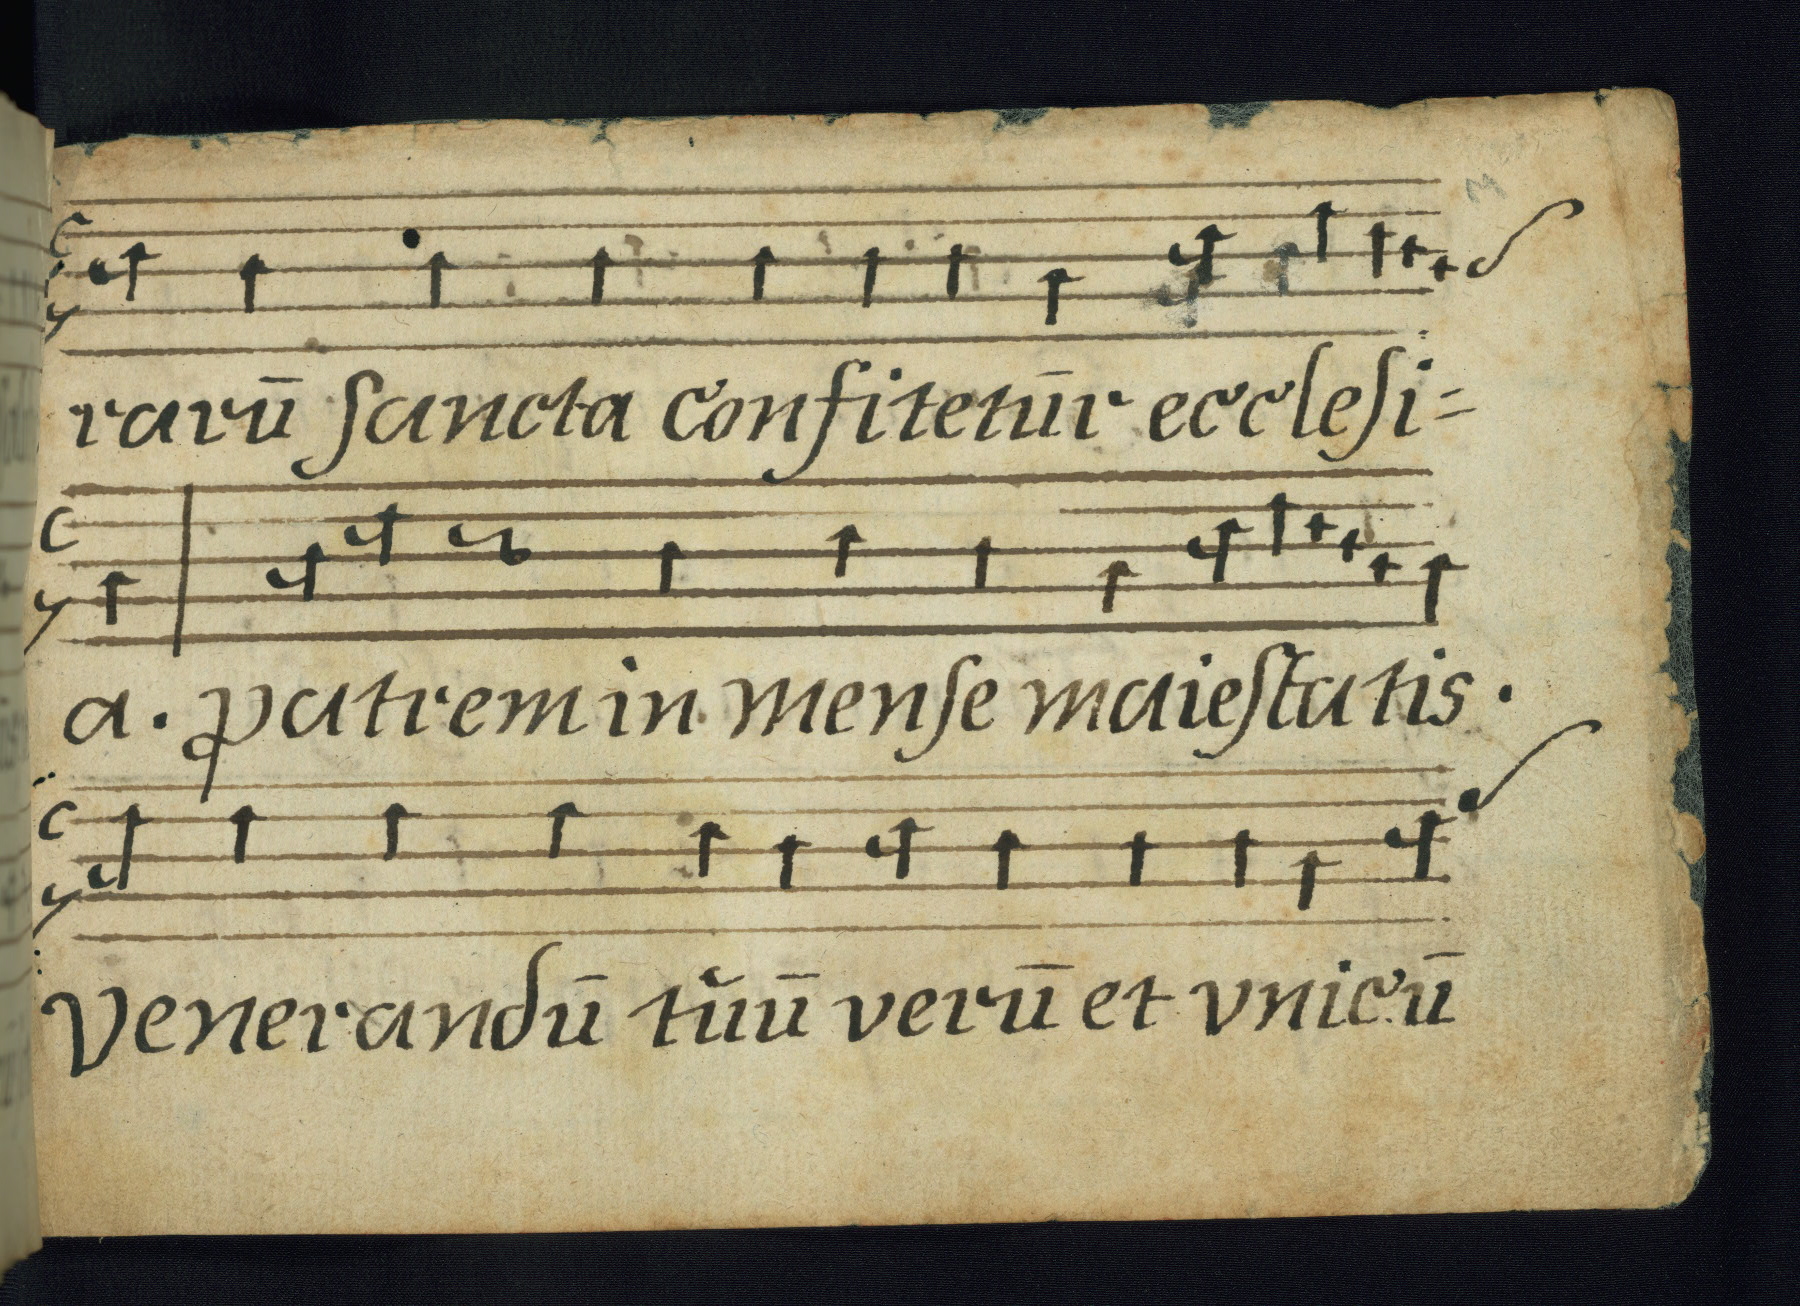 rarū ſancta confitetūr eccleſi=
a. patrem in menſe maieſtatis.
Venerandū tuū verū et vnicū